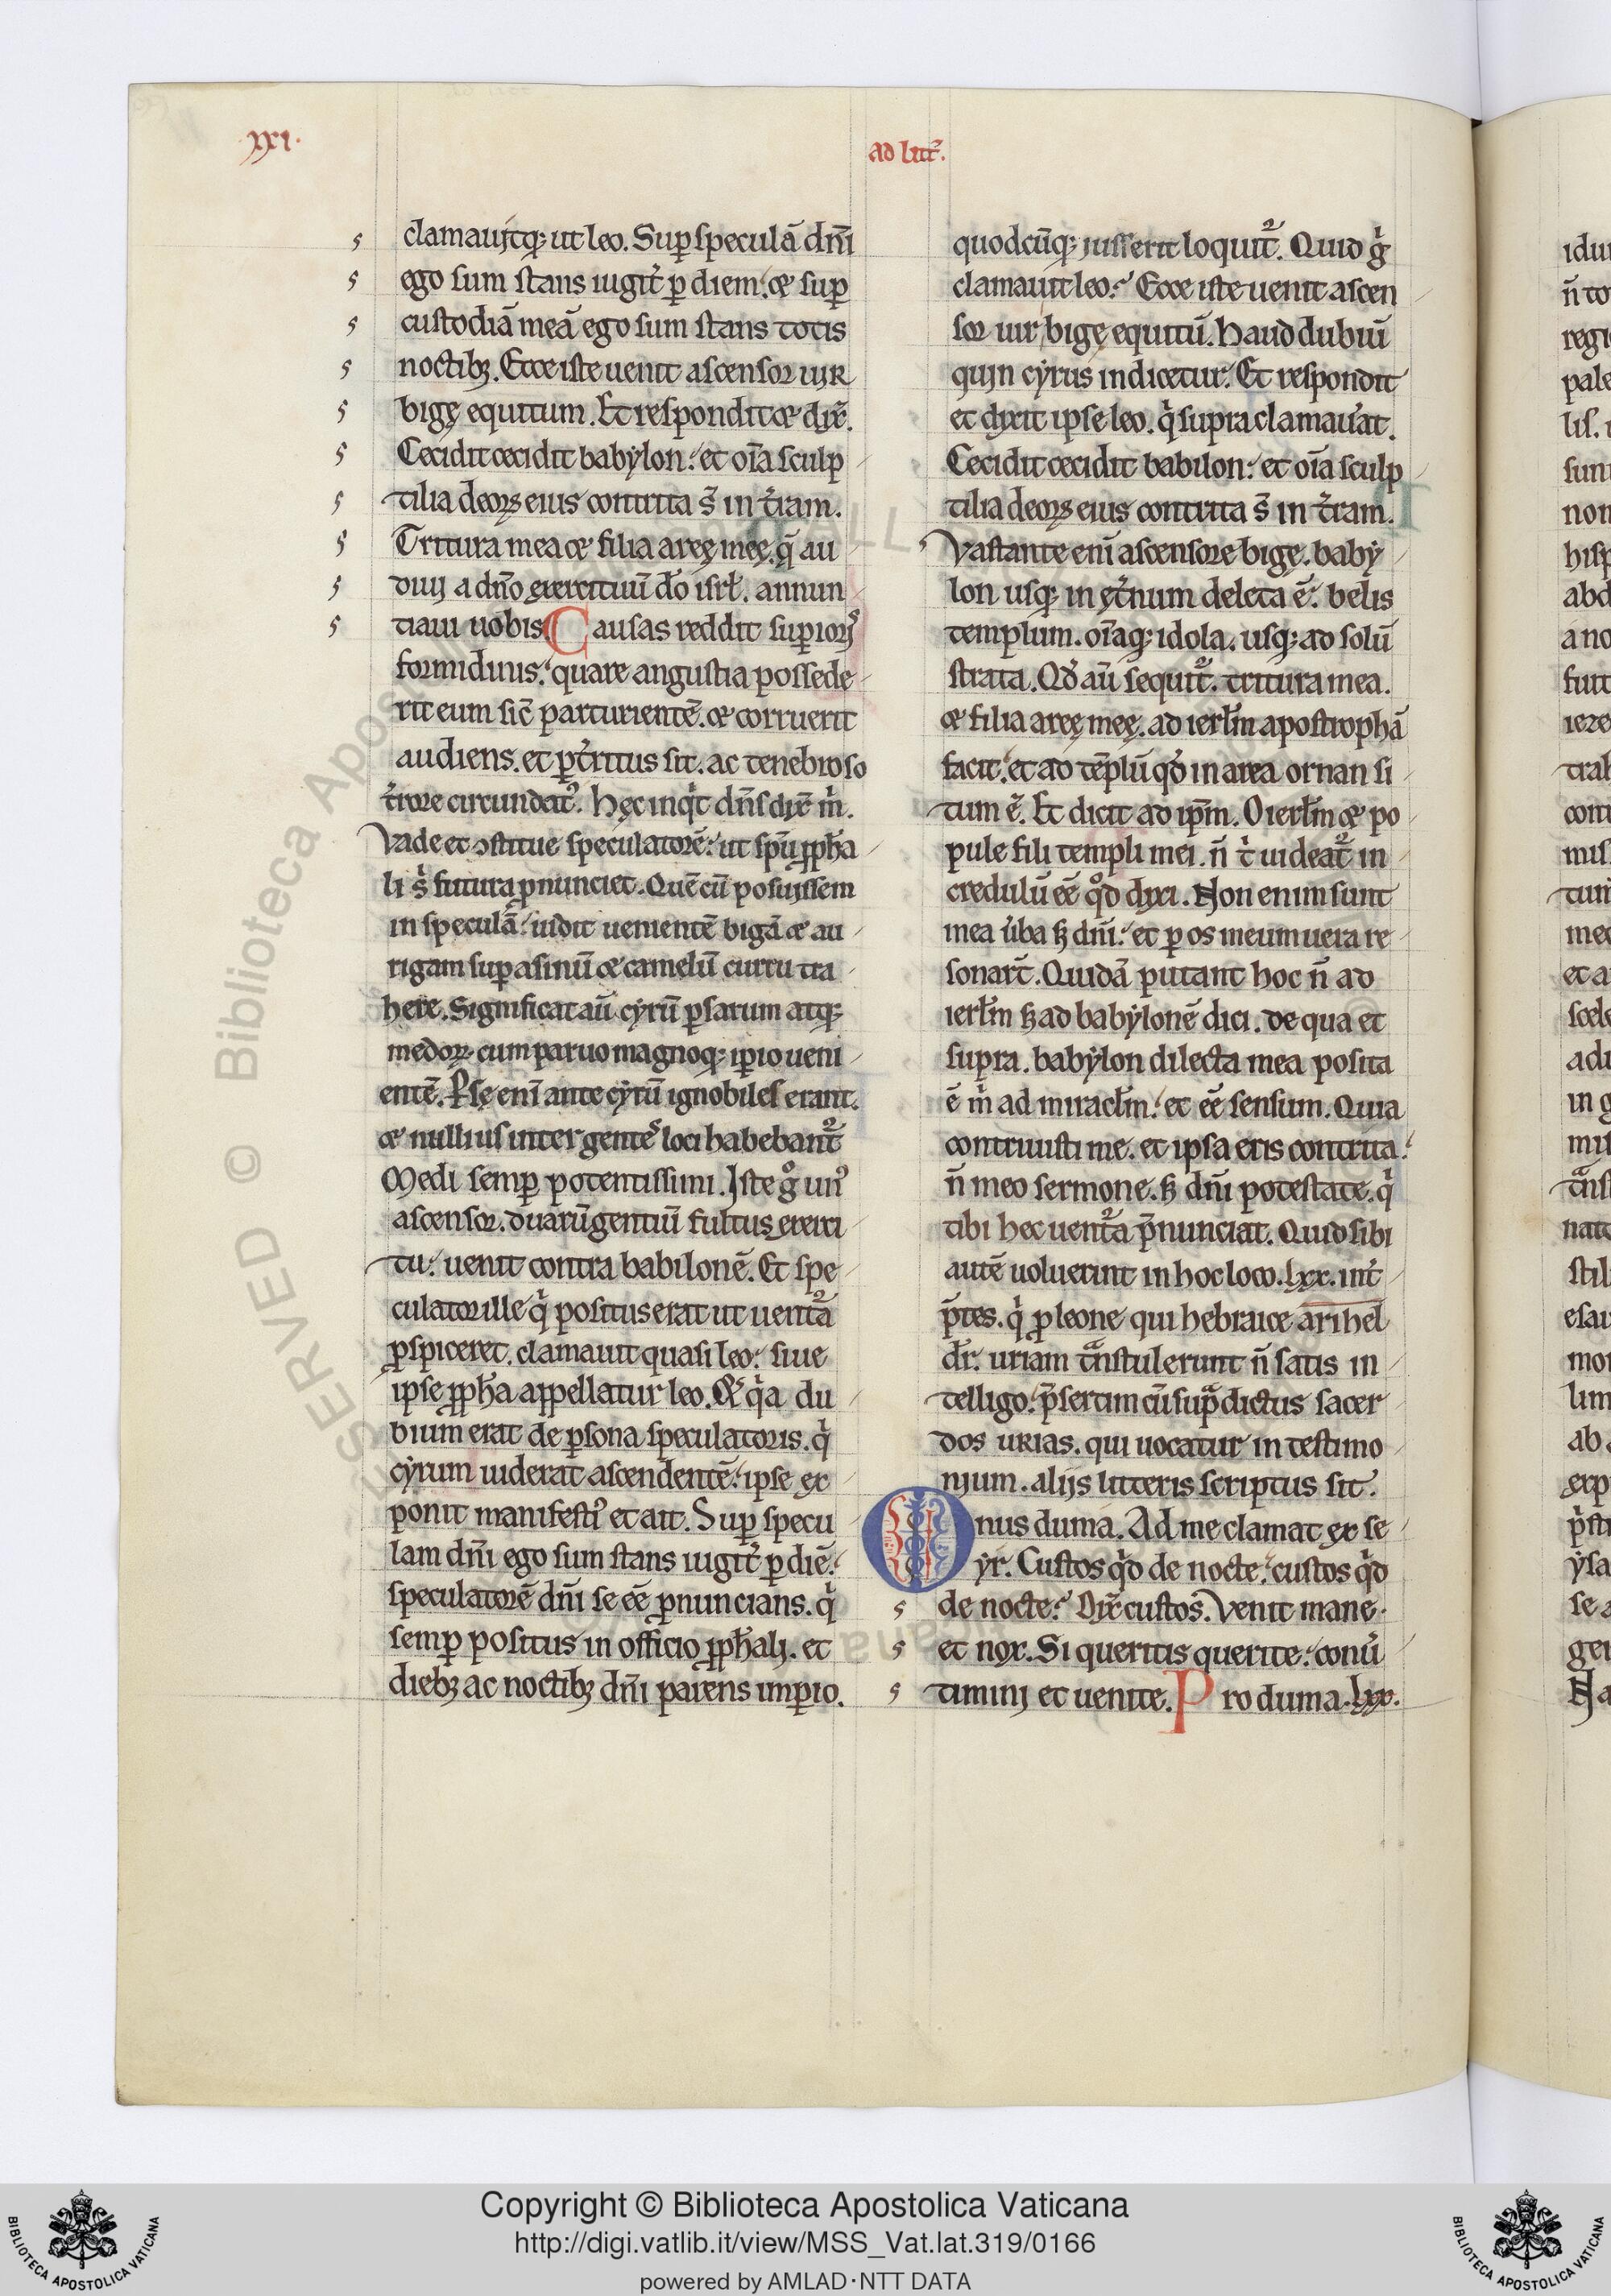 .xxi.
ad litt̃.
clamauitq; ut leo. Sup̱ speculã dñi
ego sum stans iugit̉ p̱ diem. & sup̱
custodiã meã ego sum stans totis
noctibꝫ. Ecce iste uenit ascensor uir
bigę equitum. Et respondit & dix̃.
Cecidit cecidit babẏlon: et oĩa sculp
tilia deoꝝ eius contrita s̃ in t̉ram.
Tritura mea & filia areę meę. q̃ au
diui a dño exercituũ d̃o isrł. annun
tiaui uobis. Causas reddit sup̱ioꝝ
formidinis. quare angustia possede
rit eum sic̃ parturientẽ. & corruerit
audiens. et p̱t̉ritus sit. ac tenebroso
t̉rore circundatꝰ. Hęc inqͥt dñs dix̃ m̍.
Vade et ꝯstitue speculatorẽ: ut sp̃u ꝓph̃a
li s̍ futura ꝓnunciet. Quẽ cũ posuissem
in speculã: uidit uenientẽ bigã & au
rigam sup̱ asinũ & camelũ curru tra
here. Significat aũ cẏrũ p̱sarum atq;
medoꝝ cum paruo magnoq; ip̱io ueni
entẽ. P̱sę enĩ ante cẏrũ ignobiles erant.
& nullius inter gentes loci habebant᷑
Medi semp̱ potentissimi. Iste gͦ unꝰ
ascensor. duarũ gentiũ fultus exerci
tu: uenit contra babilonẽ. Et spe
culator ille qͥ positus erat ut uent᷑a
p̱spiceret. clamauit quasi leo: siue
ipse ꝓph̃a appellatur leo. Et qͥa du
bium erat de p̱sona speculatoris. qͥ
cẏrum uiderat ascendentẽ: ipse ex
ponit manifestꝰ et ait. Sup̱ specu
lam dñi ego sum stans iugit̉ p̱ diẽ:
speculatorẽ dñi se eẽ ꝓnuncians. qͥ
semp̱ positus in officio ꝓph̃ali. et
diebꝫ ac noctibꝫ dñi parens imp̱io.
quodcũq; iusserit loquit᷑. Quid gͥ
clamauit leo? Ecce iste uenit ascen
sor uir bigę equitũ. Haud dubiũ
quin cẏrus indicetur. Et respondit
et dixit ipse leo. qͥ supra clamau̓at.
Cecidit cecidit babilon: et oĩa sculp
tilia deoꝝ eius contrita s̃ in t̉ram.
Vastante enĩ ascensore bige. babẏ
lon usq; in et̉num deleta ẽ: belis
templum. oĩaq; idola. usq; ad solũ
strata. Qd̓ aũ sequit᷑. tritura mea.
& filia areę meę. ad ierłm apostrophã
facit: et ad tẽplũ qd̓ in area ornan si
tum ẽ. Et dicit ad ip̃m. O ierłm & po
pule fili templi mei. ñ t̍ uideat᷑ in
credulũ eẽ qͦd dixi. Non enim sunt
mea u̓ba sꝫ dñi: et p̱ os meum uera re
sonart̃. Quidã putant hoc ñ ad
ierłm sꝫ ad babẏlonẽ dici. de qua et
supra. babẏlon dilecta mea posita
ẽ m̍ ad miracłm: et eẽ sensum. Quia
contriuisti me. et ipsa eris contrita:
ñ meo sermone. sꝫ dñi potestate. qͥ
tibi hec uent᷑a p̃nunciat. Quid sibi
autẽ uoluerint in hoc loco. lxx. int̉
p̃tes. qͥ ꝓ leone qui hebraice arihel
dr̃. uriam tͣnstulerunt ñ satis in
telligo: p̃sertim cũ sup̱ͣdictus sacer
dos urias. qui uocatur in testimo
nium. alijs litteris scriptus sit.
Onus duma. Ad me clamat ex se
ẏr. Custos qͥd de nocte: custos qͥd
de nocte? Dix̃ custos. Venit mane
et nox. Si queritis querite: conu̓
timini et uenite. Pro duma. lxx.